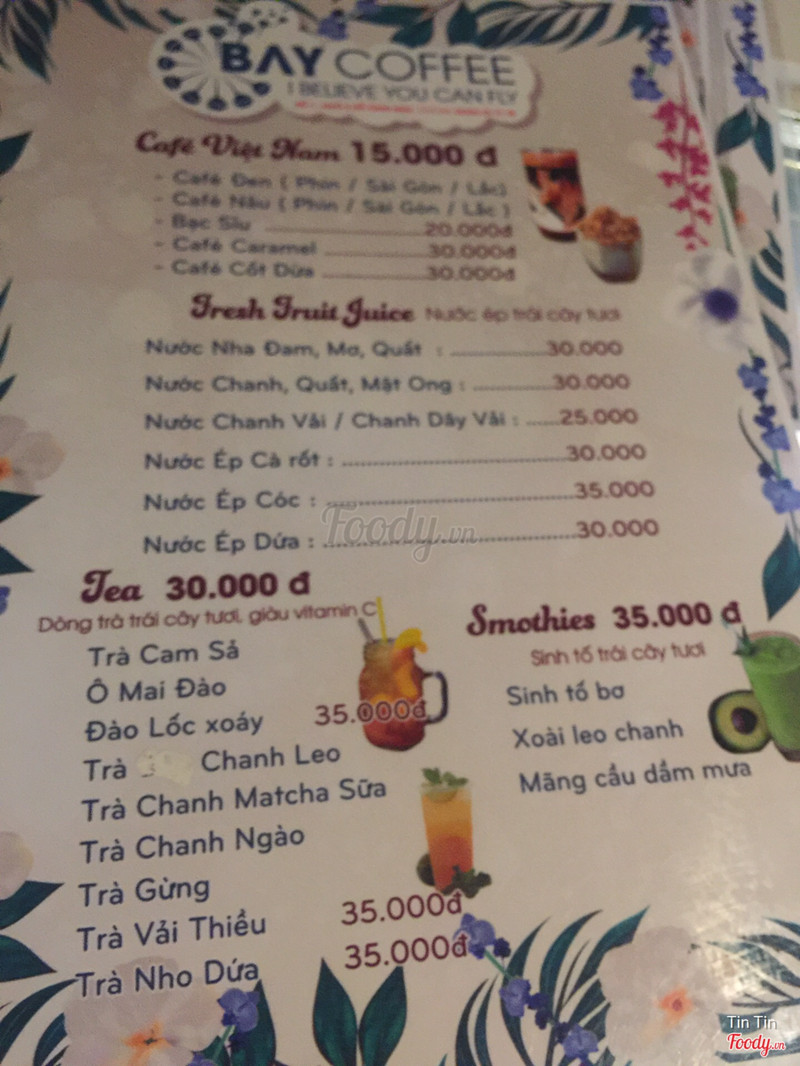 BAY COFFEE
I BELIEVE YOU CAN FLY
Café Việt Nam 15.000 đ
- Café Đen ( Phin / Sài Gòn / Lắc)
- Café Nâu ( Phin / Sài Gòn / Lắc )
- Bạc Sỉu ........ 20.000đ
- Café Caramel ........ 30.000đ
- Café Cốt Dừa ........ 30.000đ
Fresh Fruit Juice Nước ép trái cây tươi
Nước Nha Đam, Mơ, Quất : ........ 30.000
Nước Chanh, Quất, Mật Ong : ........ 30.000
Nước Chanh Vải / Chanh Dây Vải : ...... 25.000
Nước Ép Cà rốt : ........ 30.000
Nước Ép Cóc : ........ 35.000
Nước Ép Dứa : ........ 30.000
Foody.vn
Tea 30.000 đ
Dòng trà trái cây tươi, giàu vitamin C
Trà Cam Sả
Ô Mai Đào
Đào Lốc xoáy 35.000đ
Trà Chanh Leo
Trà Chanh Matcha Sữa
Trà Chanh Ngào
Trà Gừng
Trà Vải Thiều 35.000đ
Trà Nho Dứa 35.000đ
Smothies 35.000 đ
Sinh tố trái cây tươi
Sinh tố bơ
Xoài leo chanh
Mãng cầu dầm mưa
Tin Tin
Foody.vn